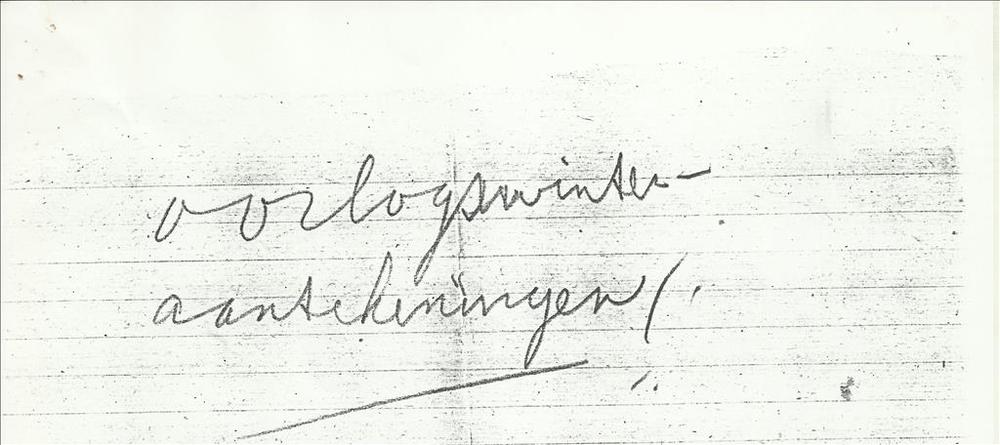 oorlogswinter-
aantekeningen